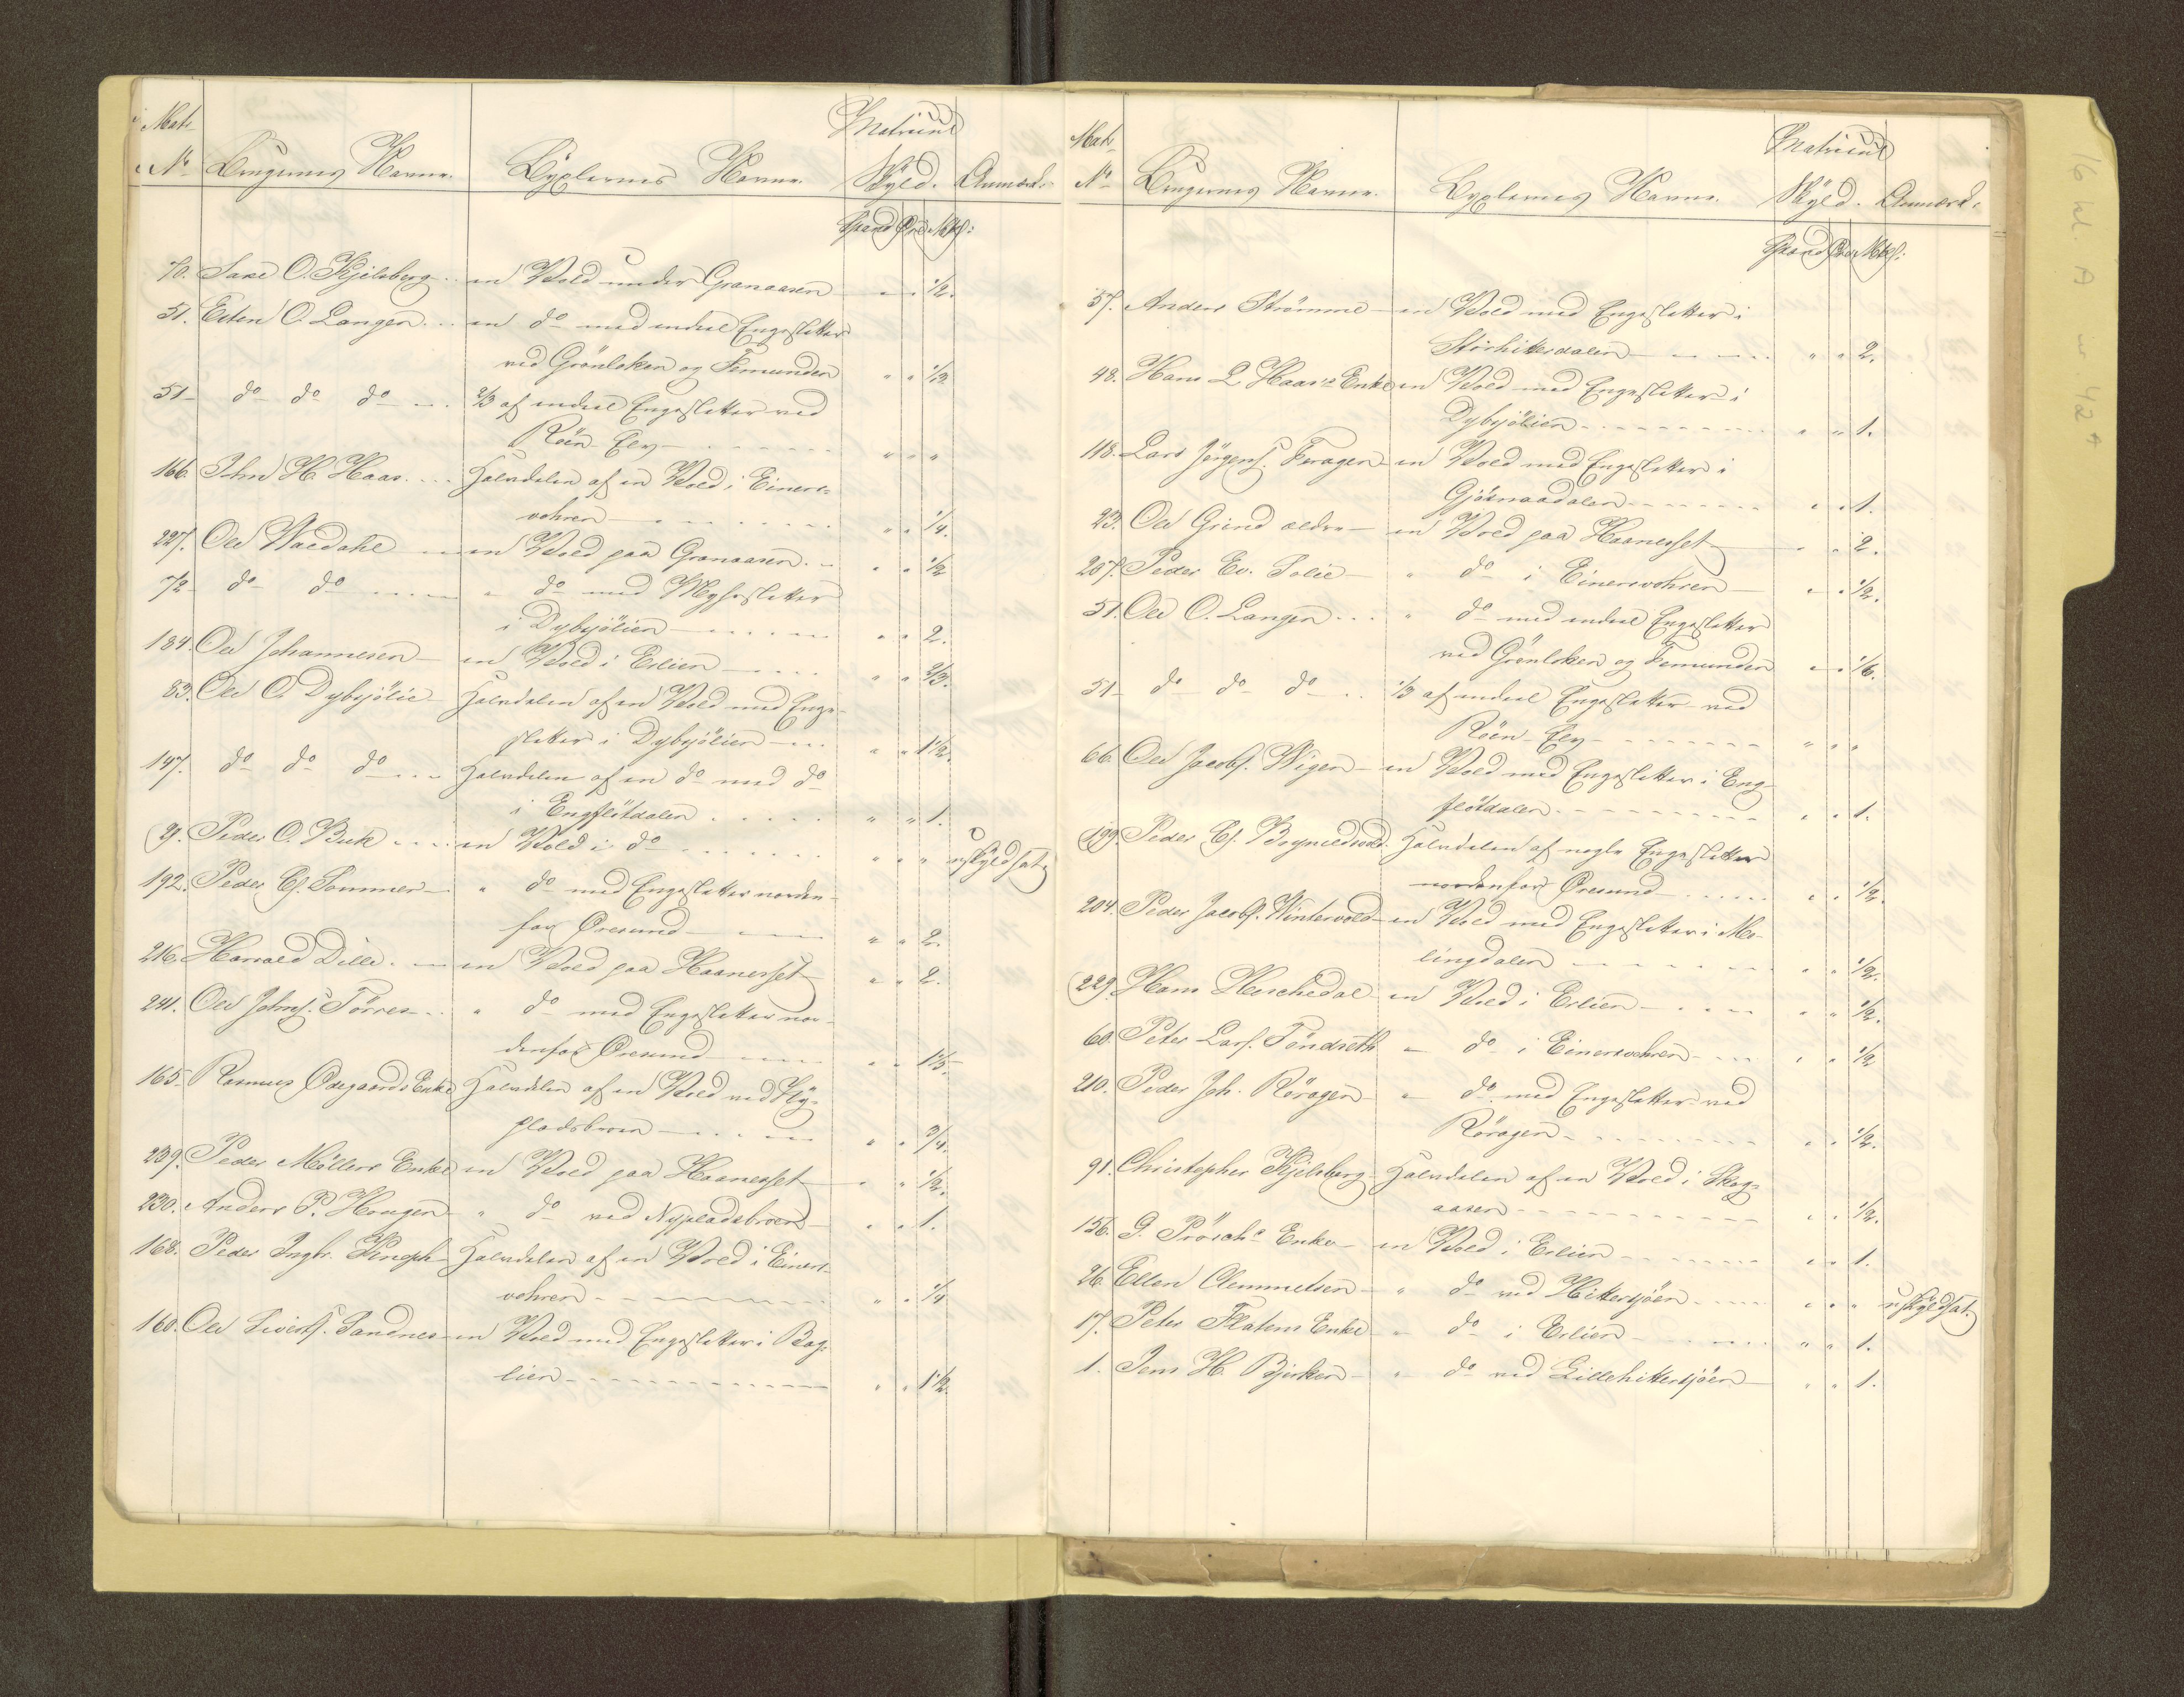 Mat.
No Brugernes Navne. Bÿxlernes Navne. Matricul Skÿld. Anmærk:
Spand Øre Mkl:
70. Saxe O. Kjelsberg en Vold under Granaasen " " 1/2.
51. Esten O. Langen en do med endeel Engesletter
ved Grönloken og Femunden " " 1/3
51 do do do 2/3 af endeel Engesletter ved
Röen Elv " " "
166. John H. Haas Halvdelen af en Vold i Einers-
vohren " " 1/4.
227. Ole Waldahl en Vold paa Granaasen " " 1/2
72 do do " do med Myhrsletter
i Dybsjölien " " 2.
184. Ole Johannesen en Vold i Erlien " " 2/3.
83. Ole O. Dybsjölie Halvdelen af en Vold med Enge-
sletter i Dybsjölien " " 1 1/2.
147. do do do Halvdelen af en do med do
i Engflötdalen " " 1.
9. Peder O. Buk en Vold i do " " " uskyldsat
192. Peder Es. Sommer " do med Engesletter norden-
for Øresund " " 2.
216. Harald Dille en Vold paa Haanesset " " 2.
241. Ole Johns. Törres " do med Engesletter nor-
denfor Øresund " " 1 1/3.
165. Rasmus Ødegaards Enke Halvdelen af en Vold ved Nÿ-
pladsbroen " " 3/4.
239. Peder Möllers Enke en Vold paa Haanesset " " 1/2.
230. Anders P. Hougen " do ved Nypladsbroen " " 1.
168. Peder Ingbr. Knoph Halvdelen af en Vold i Einers-
vohren " " 1/4
160. Ole Siverts. Sandnes en Vold med Engesletter i Bog-
lien " " 1 1/2.
Mat.
No Brugernes Navne. Byxlernes Navne. Matricul Skÿld. Anmærk:
Spand Øre Mkl:
57. Anders Strömme en Vold med Engesletter i
Storhitterdalen " " 2.
48. Hans L. Haas's Enke en Vold med Engesletter i
Dybsjölien " " 1.
118. Lars Jörgens. Feragen en Vold med Engesletter i
Gjösvaadalen " " 1.
23. Ole Grind ældre en Vold paa Haanesset " " 2.
207. Peder Ev. Solie " do i Einersvohren " " 1/2.
51. Ole O. Langen " do med endeel Engesletter
ved Grönloken og Femunden " " 1/6.
51 do do do 1/3 af endeel Engesletter ved
Röen Elv " " "
66. Ole Jacobs. Wigen en Vold med Engesletter i Eng-
flötdalen " " 1.
199. Peder Es. Brynildsvold Halvdelen af nogle Engesletter
nordenfor Øresund " " 1/2.
204. Peder Jacobs. Wintervold en Vold med Engesletter i Mo-
lingdalen " " 1/2.
229. Hans Heschedal en Vold i Erlien " " 1/2.
60. Peter Lars. Töndseth " do i Einersvohren " " 1/2
210. Peder Joh. Röragen " do med Engesletter ved
Röragen " " 1/2.
91. Christopher Kjelsberg Halvdelen af en Vold i Skog-
aasen " " 1/2.
156. G. Prösch's Enke en Vold i Erlien " " 1.
26. Ellen Clemmetsen " do ved Hittersjöen " " " uskÿldsat.
17. Peter Flatens Enke " do i Erlien " " 1.
1. Jens H. Bjerken " do ved Lillehittersjöen " " 1.
16 kl. A nr. 42 A